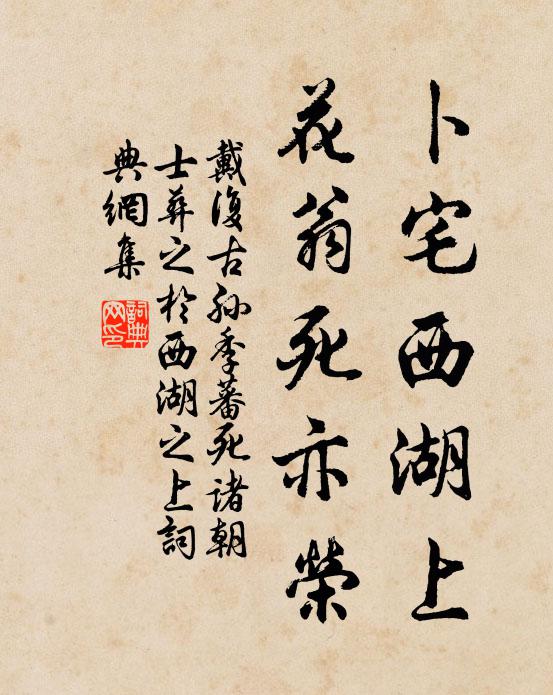 卜宅西湖上
花翁死亦榮
戴復古孫季蕃死諸朝
士葬之於西湖之上詞
典網集
詞典
网印